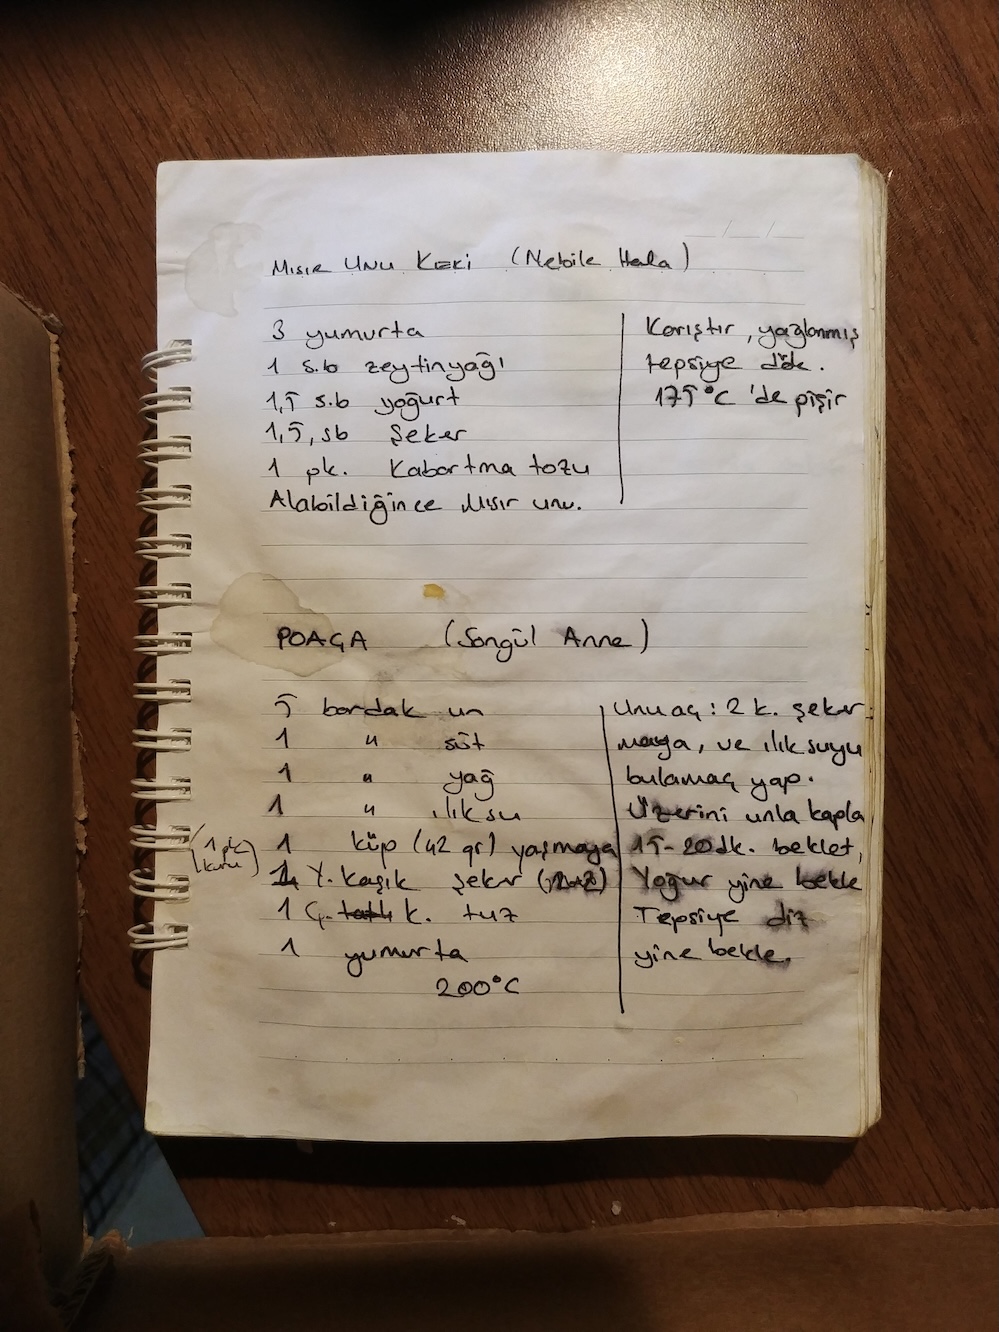 Mısır Unu Keki (Nebile Hala)
3 yumurta
1 s.b zeytinyağı
1,5 s.b yoğurt
1,5, sb Şeker
1 pk. Kabartma tozu
Alabildiğince Mısır unu.
Karıştır, yağlanmış
tepsiye dök.
175°C 'de pişir
POAÇA (Songül Anne)
5 bardak un
1 " süt
1 " yağ
1 " ılık su
1 küp (42 gr) yaşmaya
(1 pk kuru)
Y. kaşık şeker
1 Ç. tatlı k. tuz
1 yumurta
200°C
Unu aç: 2 k. şeker
maya, ve ılık suyu
bulamaç yap.
Üzerini unla kapla
15-20dk. beklet,
Yoğur yine bekle
Tepsiye diz
yine bekle.